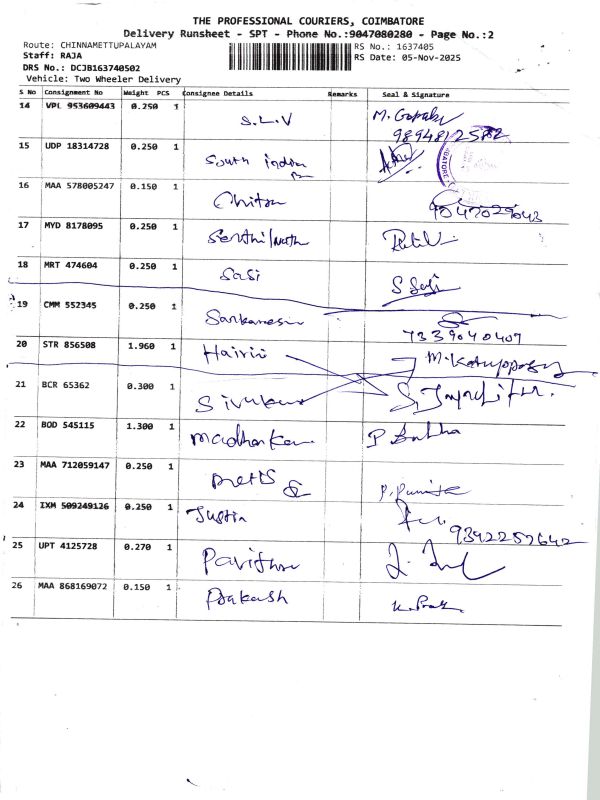 THE PROFESSIONAL COURIERS, COIMBATORE
Delivery Runsheet - SPT - Phone No.:9047080280 - Page No.:2
Route: CHINNAMETTUPALAYAM RS No.: 1637405
Staff: RAJA RS Date: 05-Nov-2025
DRS No.: DCJB163740502
Vehicle: Two Wheeler Delivery
S No Consignment No Weight PCS Consignee Details Remarks Seal & Signature
14 VPL 953609443 0.250 1 S.L.V M. Gopal
15 UDP 18314728 0.250 1 South Indian
16 MAA 578005247 0.150 1 Chitra 9047029043
17 MYD 8178095 0.250 1 Senthilnath
18 MRT 474604 0.250 1 Sasi S Sasi
19 CMM 552345 0.250 1 7339040409
20 STR 856508 1.960 1 Harini
21 BCR 65362 0.300 1 Sivakumar
22 BOD 545115 1.300 1
23 MAA 712059147 0.250 1 P. Punitha
24 IXM 509249126 0.250 1 Justin 9342257642
25 UPT 4125728 0.270 1 Pavithra
26 MAA 868169072 0.150 1 Prakash K. Prak